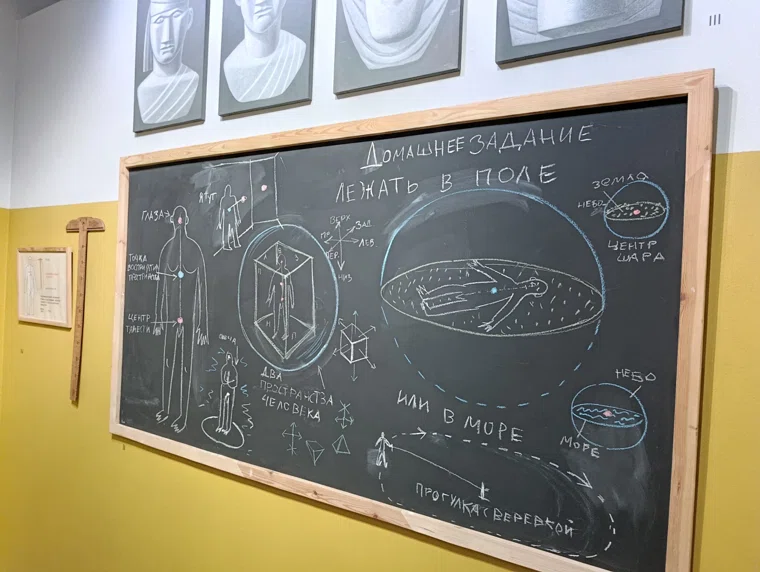 ДОМАШНЕЕ ЗАДАНИЕ
ЛЕЖАТЬ В ПОЛЕ
ГЛАЗА
ТОЧКА
ВОСПРИЯТИЯ
ПРОСТРАНСТВА
ЦЕНТР
ТЯЖЕСТИ
ВЕРХ
ЗАД
ПР.
ЛЕВ.
ПЕР.
НИЗ
ДВА
ПРОСТРАНСТВА
ЧЕЛОВЕКА
ЗЕМЛЯ
НЕБО
ЦЕНТР
ШАРА
ИЛИ В МОРЕ
НЕБО
МОРЕ
ПРОГУЛКА С ВЕРЕВКОЙ
III